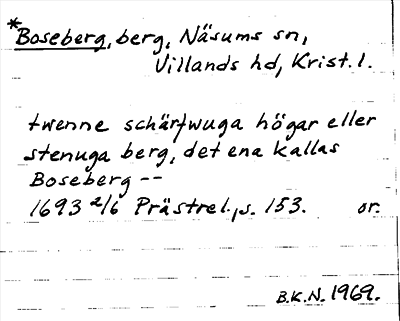 *Boseberg, berg, Näsums sn,
Villands hd, Krist. l.
twenne schärfwuga högar eller
stenuga berg, det ena kallas
Boseberg --
1693 2/6 Prästrel., s. 153. or.
B.K.N. 1969.